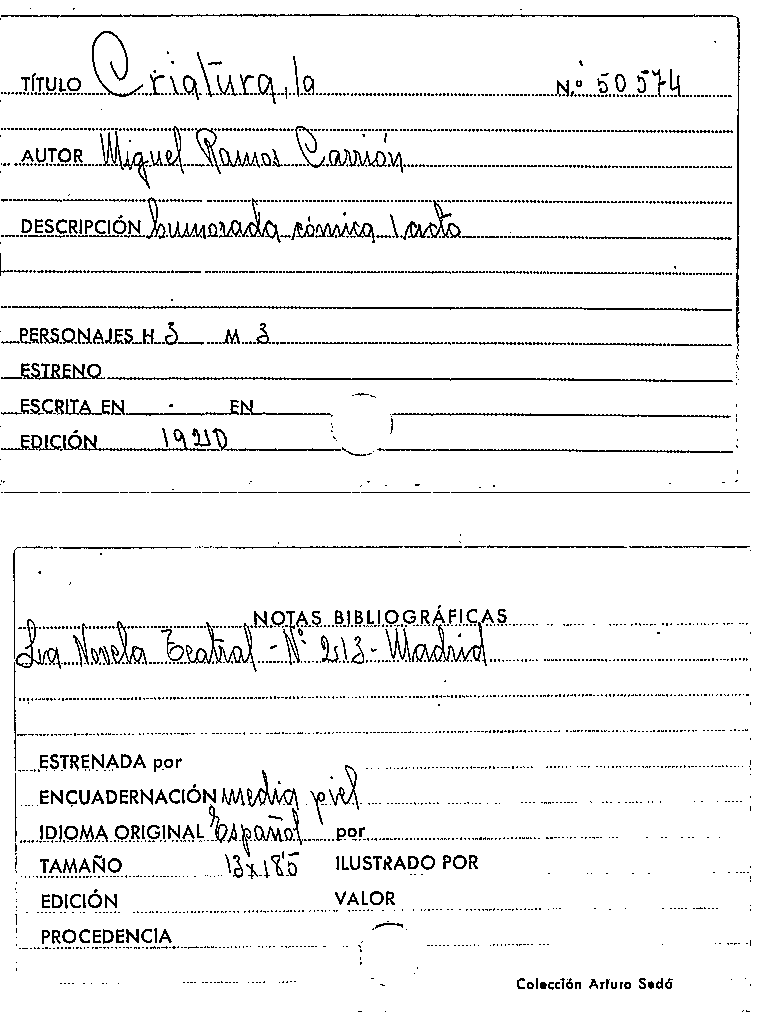 TÍTULO Criatura, la N.º 50574
AUTOR Miguel Ramos Carrión
DESCRIPCIÓN humorada cómica 1 acto
PERSONAJES H 3 M 3
ESTRENO
ESCRITA EN EN
EDICIÓN 1920
NOTAS BIBLIOGRÁFICAS
La Novela Teatral - Nº 213 - Madrid
ESTRENADA por
ENCUADERNACIÓN media piel
IDIOMA ORIGINAL Español por
TAMAÑO 13x18'5 ILUSTRADO POR
EDICIÓN VALOR
PROCEDENCIA
Colección Arturo Sedó